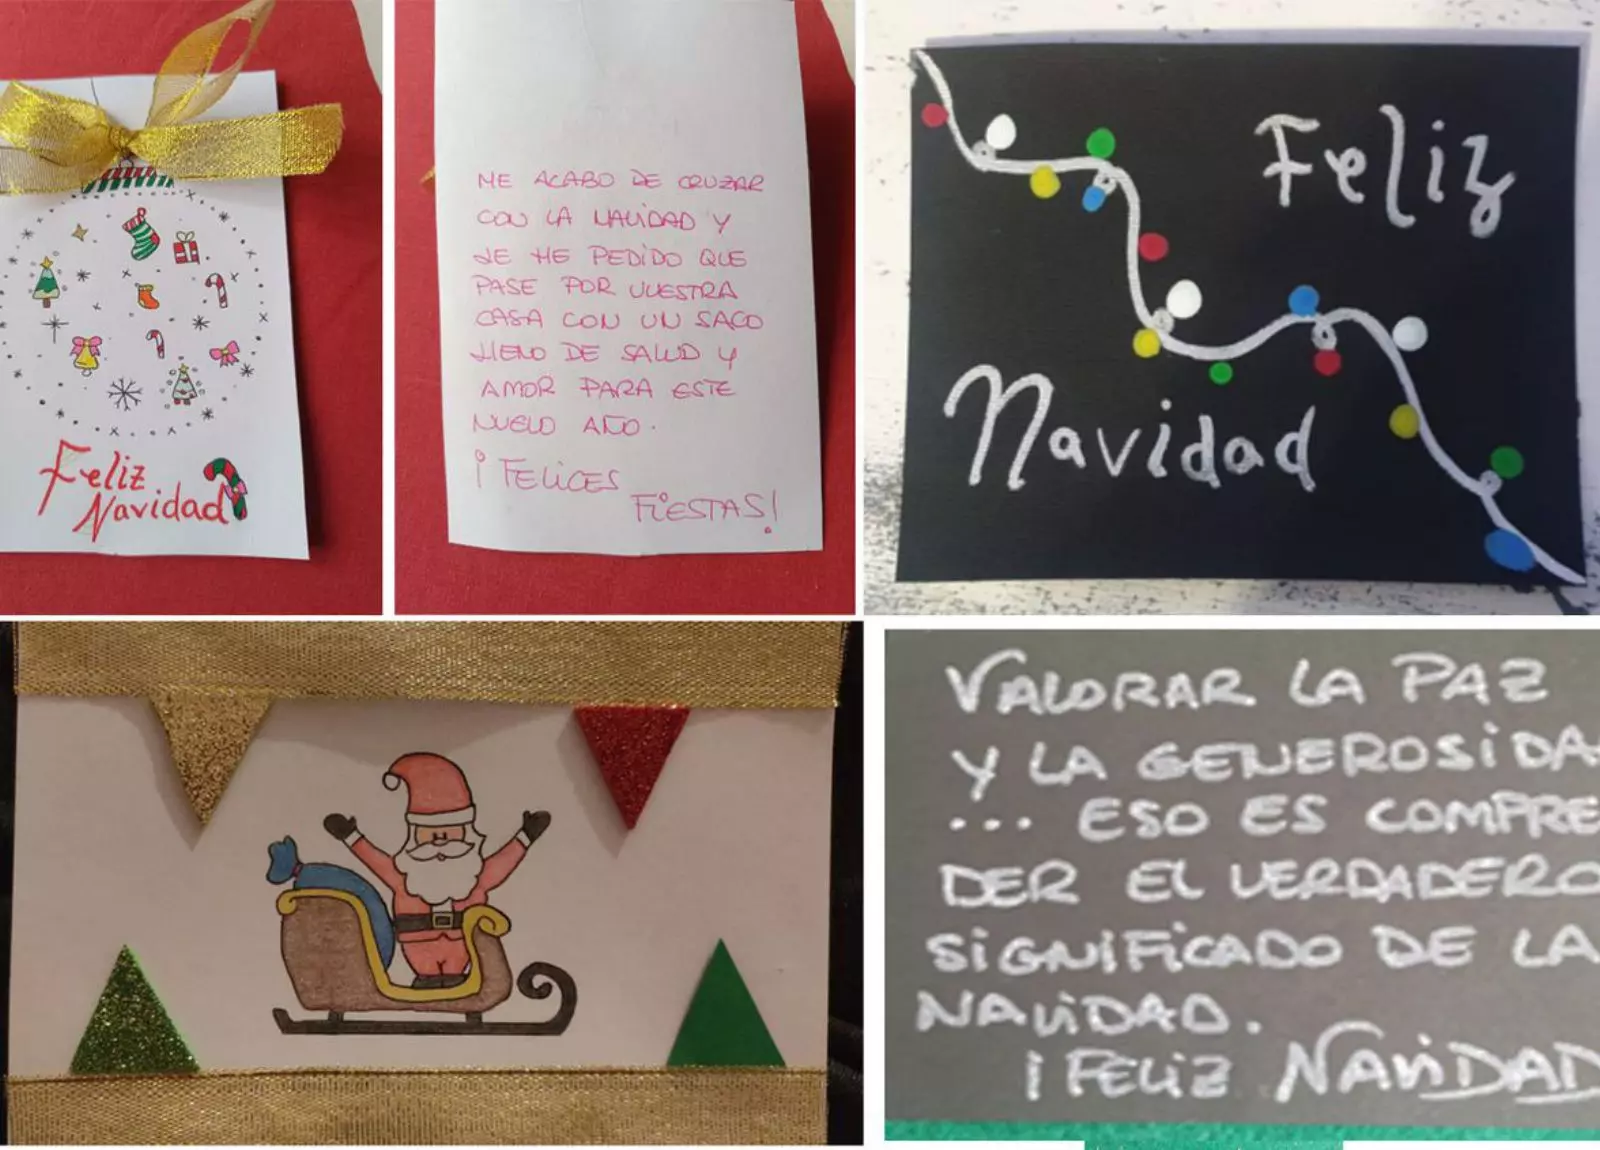 Feliz
Navidad
ME ACABO DE CRUZAR
CON LA NAVIDAD Y
SE ME PEDIDO QUE
PASE POR VUESTRA
CASA CON UN SACO
LLENO DE SALUD Y
AMOR PARA ESTE
NUEVO AÑO.
¡FELICES
FIESTAS!
Feliz
Navidad
VALORAR LA PAZ
Y LA GENEROSIDA
... ESO ES COMPRE
DER EL VERDADERO
SIGNIFICADO DE LA
NAVIDAD.
¡FELIZ NAVIDAD